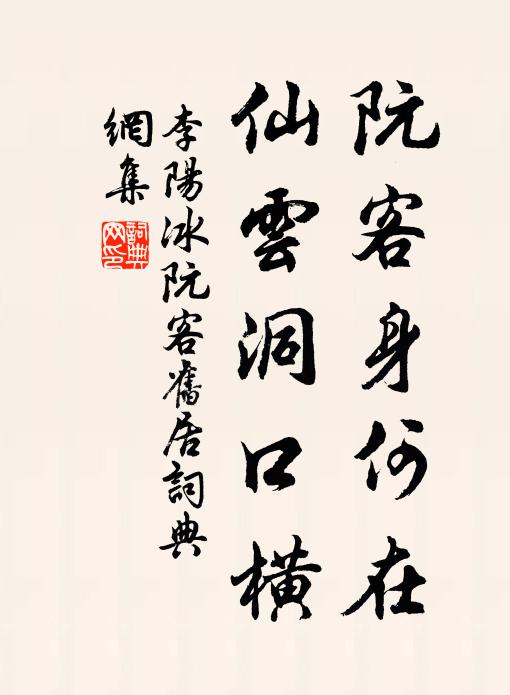 阮客身何在
仙雲洞口橫
李陽冰阮客舊居詞典
網集
詞典
网印